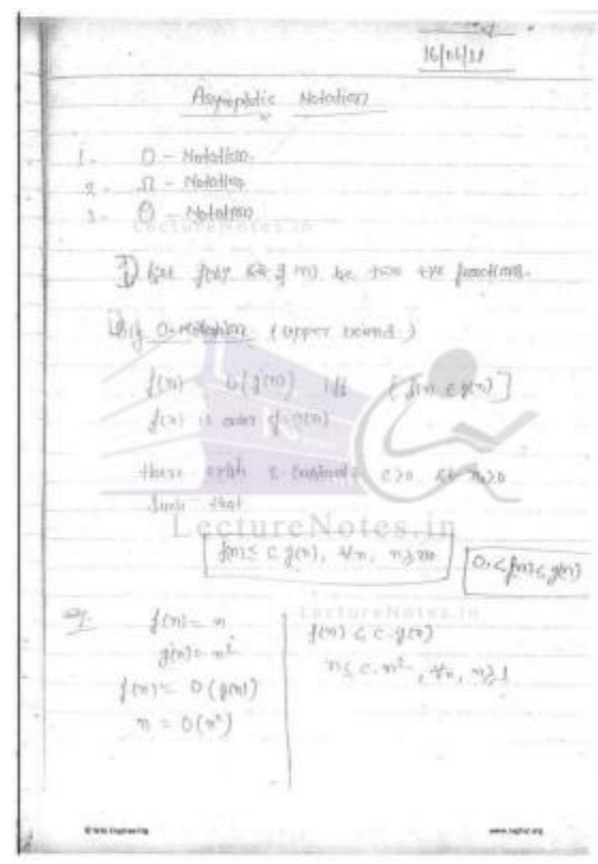 Asymptotic Notation
1 - O - Notation.
2 - Ω - Notation
3 - θ - Notation
LectureNotes.in
be two +ve functions.
Big O-notation (upper bound)
f(n) = O(g(n)) iff [f(n) ≤ g(n)]
f(n) is order of g(n)
there exist 2 constants c>0 & n₀≥0
Such that
LectureNotes.in
f(n) ≤ c g(n), ∀n, n≥n₀
0 ≤ f(n) ≤ g(n)
LectureNotes.in
eg. f(n) = n
g(n) = n²
f(n) = O(g(n))
n = O(n²)
f(n) ≤ c.g(n)
n ≤ c.n², ∀n, n≥1